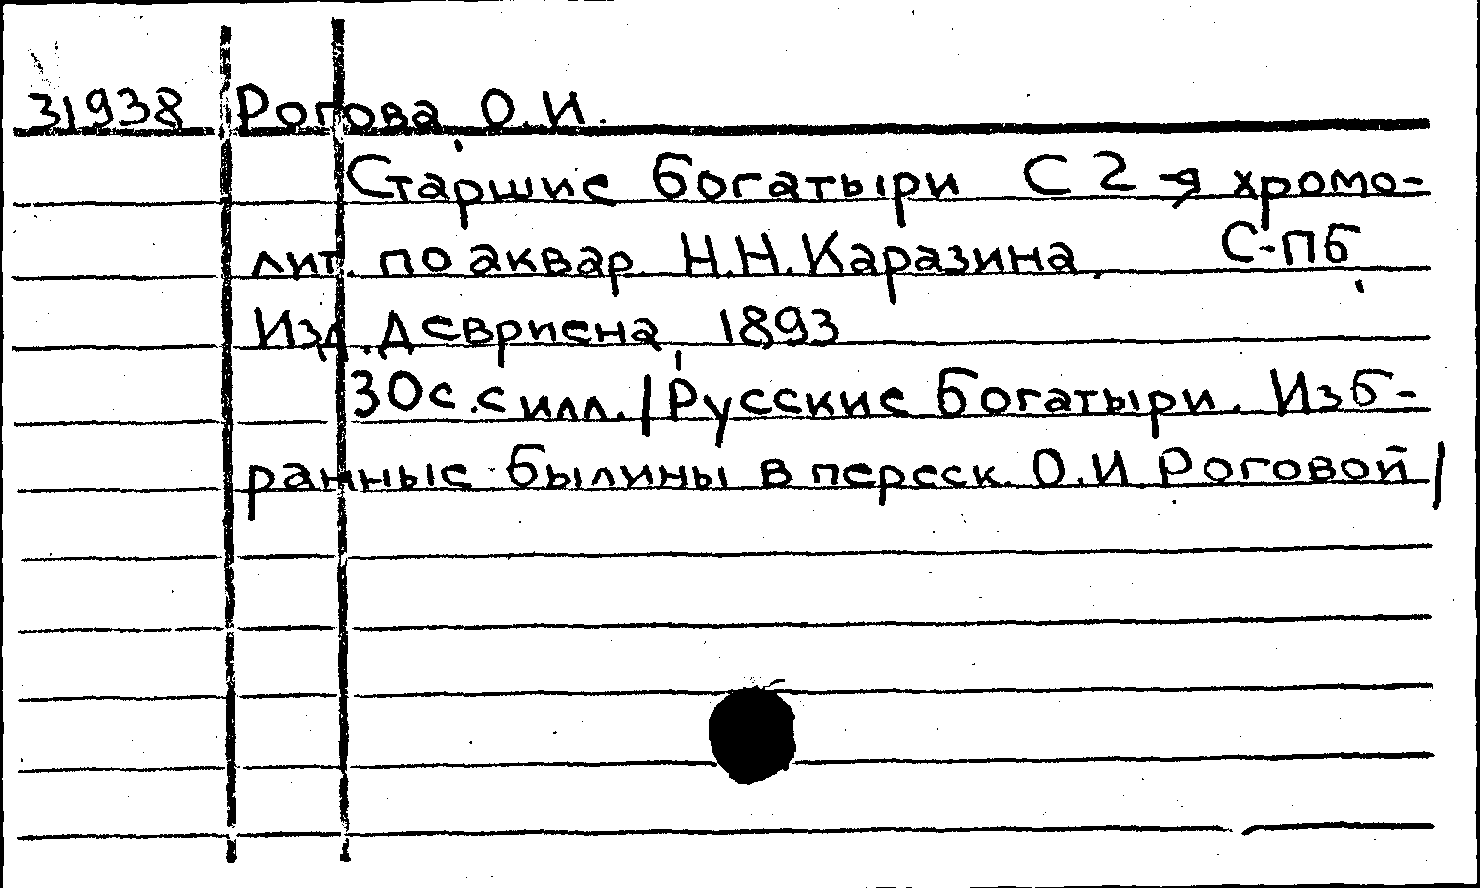 31938 Рогова, О.И.
Старшие богатыри С 2-я хромо-
лит. по аквар. Н.Н.Каразина. С-Пб,
Изд. Девриена, 1893
30с.с илл. /Русские богатыри. Изб-
ранные былины в переск. О.И Роговой/